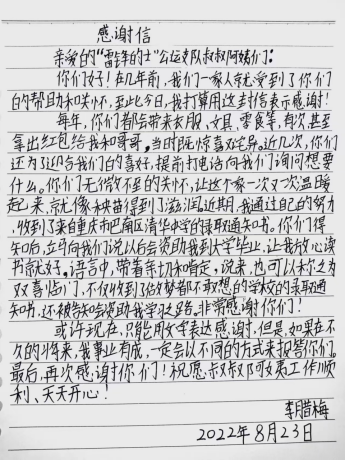 感谢信
亲爱的“雷锋的士”公益车队叔叔阿姨们:
你们好!在几年前,我们一家人就受到了你们
的帮助和关怀,至此今日,我打算用这封信表示感谢!
每年,你们都会带来衣服、文具、零食等,有次,甚至
拿出红包给我和哥哥。当时既惊喜又诧异。近几次,你们
还为了迎合我们的喜好,提前打电话向我们询问想要
什么。你们无微不至的关怀,让这个家一次又一次温暖
起来,就像秧苗得到了滋润。近期,我通过自己的努力
,收到了来自重庆市巴南区清华中学的录取通知书。你们得
知后,立马向我们说以后会资助我到大学毕业,让我放心读
书就好。语言中,带着亲切和肯定,说来,也可以称之为
双喜临门,不仅收到了做梦都不敢想的学校的录取通
知书,还被告知会资助我学业之路。非常感谢你们!
或许现在,只能用文字表达感谢,但是,如果在不
久的将来,我事业有成,一定会以不同的方式来报答你们。
最后,再次感谢你们!祝愿叔叔阿姨工作顺
利、天天开心!
李腊梅
2022年8月23日